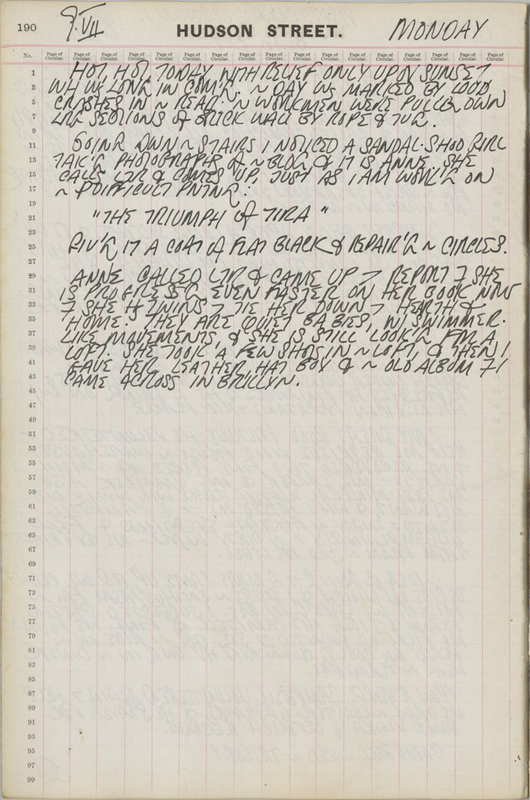 190 9.VII HUDSON STREET. MONDAY
No. Page of Circular. Page of Circular. Page of Circular. Page of Circular. Page of Circular. Page of Circular. Page of Circular. Page of Circular. Page of Circular. Page of Circular. Page of Circular. Page of Circular. Page of Circular. Page of Circular. Page of Circular. Page of Circular. Page of Circular. Page of Circular.
1 HOT, HOT TODAY, WITH RELIEF ONLY UPON SUNSET
3 WH WS LONR IN COM'R. ~ DAY WS MARKED BY LOUD
5 CRASHES IN ~ REAR. ~ WORKMEN WERE PULL'R DOWN
7 LRR SECTIONS of BRICK WALL BY ROPE & TUR.
9
11 GOINR DWN ~ STAIRS I NOTICED A SANDAL-SHOD GIRL
13 TAK'R PHOTOGRAPHS of ~ BLDR & IT IS ANNE. SHE
15 CALLS L2R & COMES UP, JUST AS I AM WORK'R ON
17 ~ DIFFICULT PNTNR:
19
21 "THE TRIUMPH of TIRA"
23
25 GIV'R IT A COAT of FLAT BLACK & REPAIR'R ~ CIRCLES.
27
29 ANNE CALLED L2R & CAME UP 7 REPORT 7 SHE
31 IS PROGRESS'R EVEN FASTER ON HER BOOK NOW
33 7 SHE HS TWINS 7 TIE HER DOWN 7 HEARTH &
35 HOME. THEY ARE QUIET BABIES, W/ SWIMMER-
37 LIKE MOVEMENTS, & SHE IS STILL LOOK'R FOR A
39 LOFT. SHE TOOK A FEW SHOTS IN ~ LOFT, & THEN I
41 GAVE HER LEATHER HAT BOX & ~ OLD ALBUM 7 I
43 CAME ACROSS IN BRKLYN.
45
47
49
51
53
55
57
59
61
63
65
67
69
71
73
75
77
79
81
83
85
87
89
91
93
95
97
99